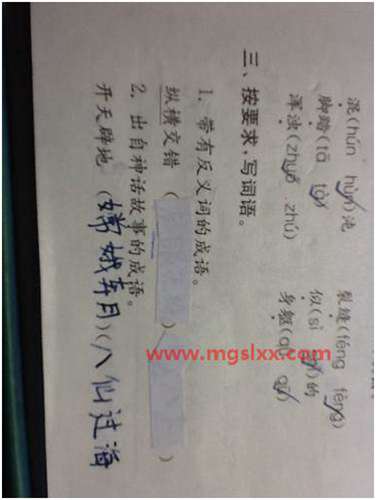 混(hún hùn)沌 裂缝(féng fèng)
脚踏(tā tà) 似(sì )的
浑浊(zhuó zhú) 身躯(
三、按要求,写词语。
1. 带有反义词的成语。
纵横交错 ( ) (
2. 出自神话故事的成语。
开天辟地 (嫦娥奔月)(八仙过海
www.mgslxx.com